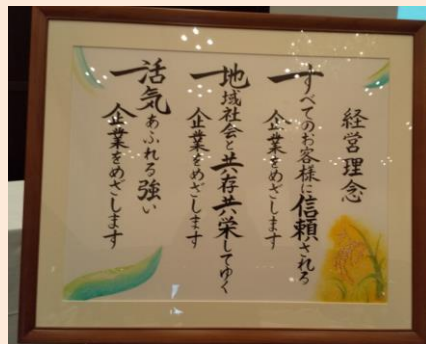 経営理念
一すべてのお客様に信頼される
企業をめざします
一地域社会と共存共栄してゆく
企業をめざします
一活気あふれる強い
企業をめざします